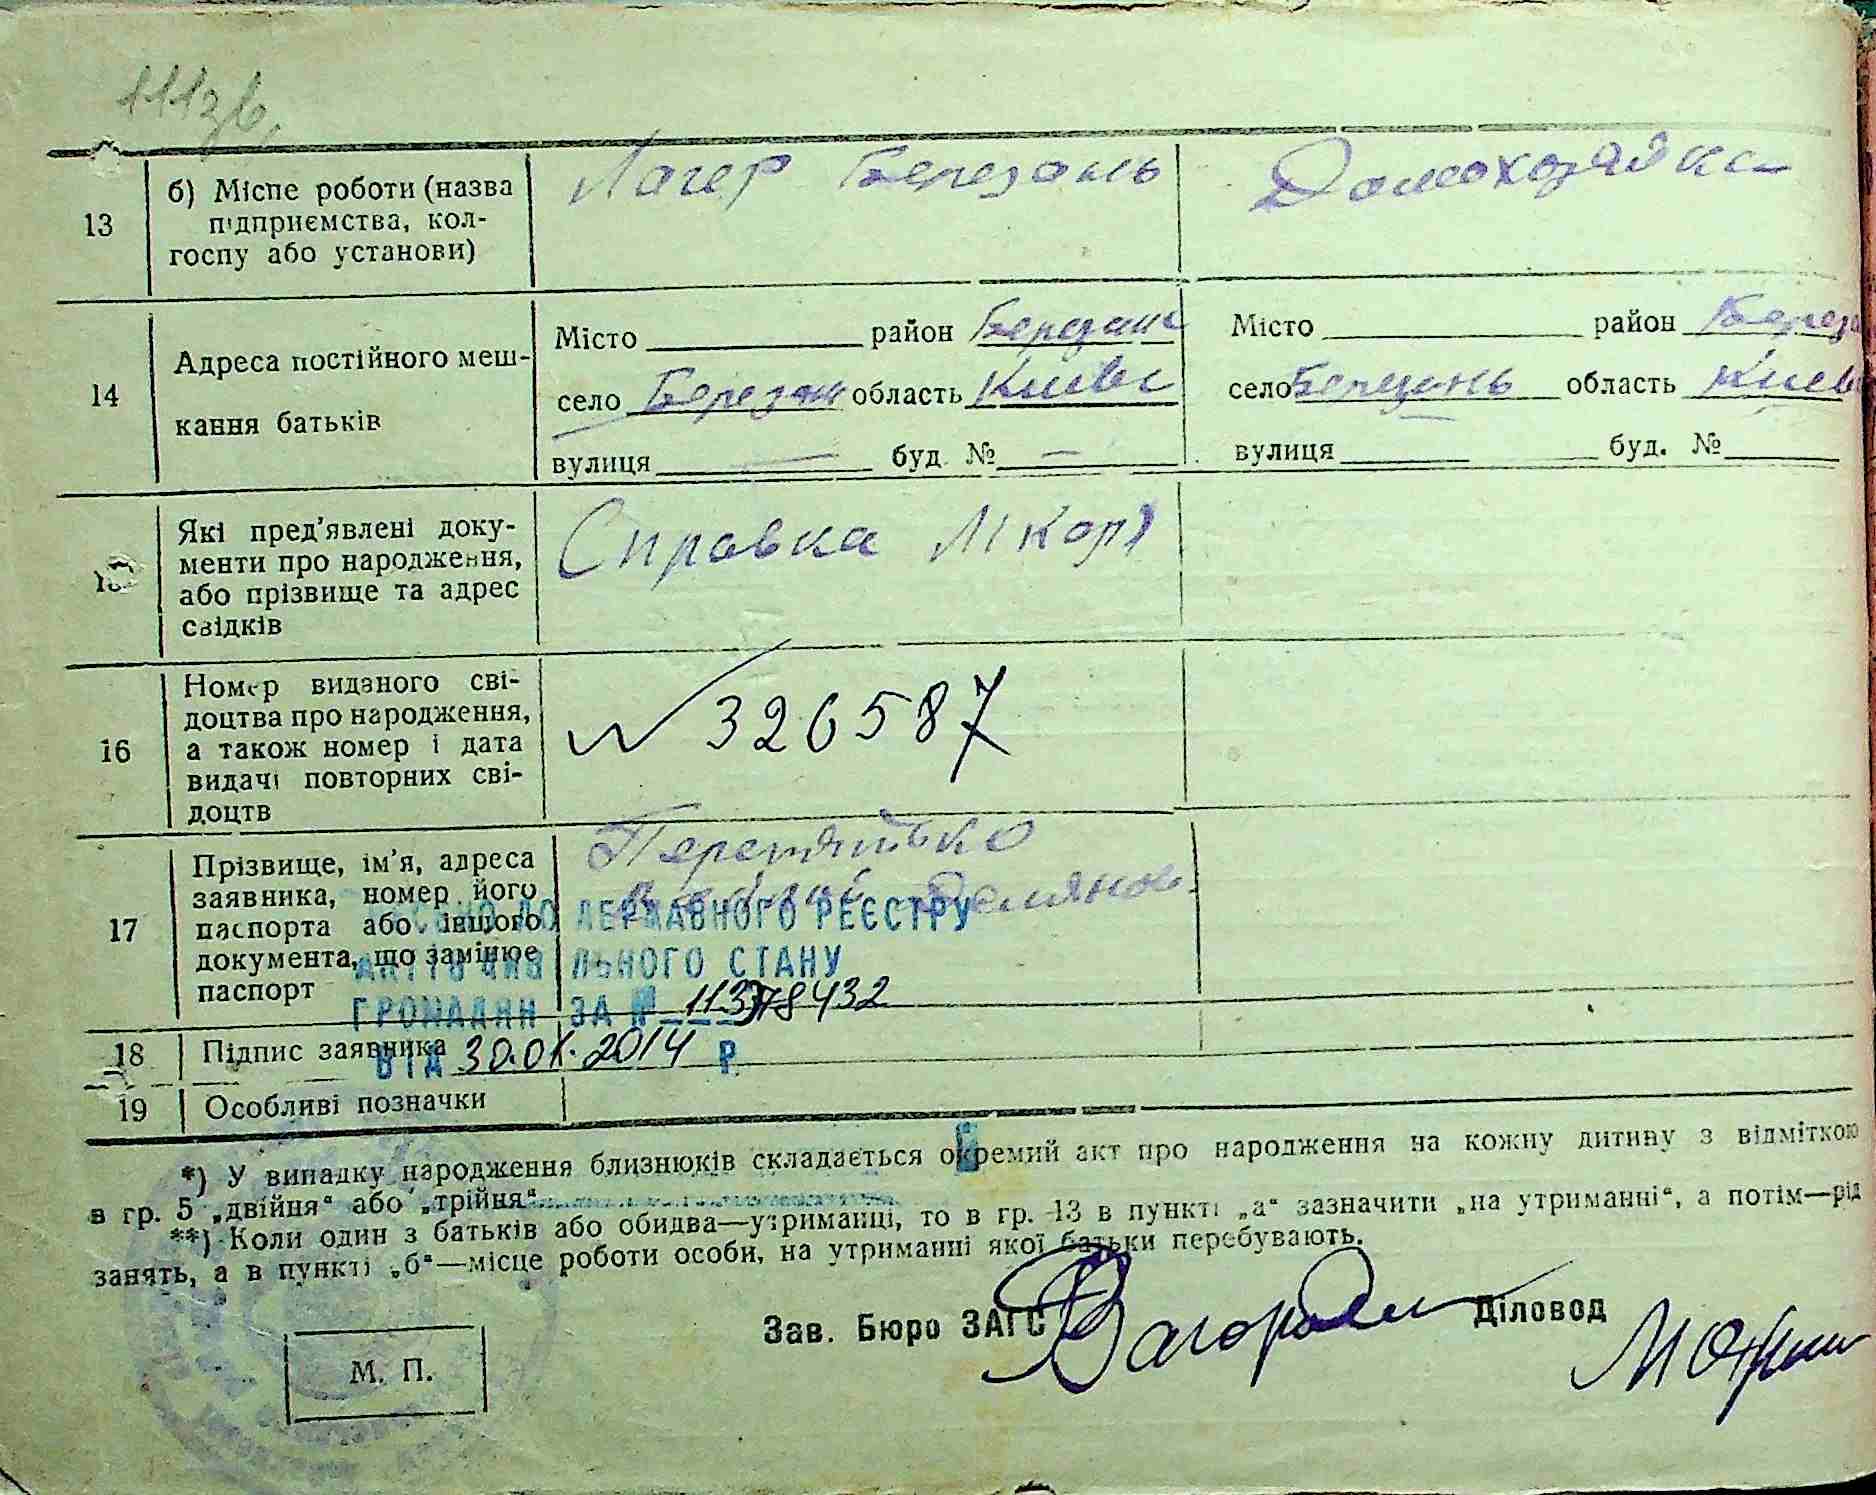 111зв.
13 б) Місце роботи (назва підприємства, колгоспу або установи)
Лагер Березань
Домохозяйка
14 Адреса постійного мешкання батьків
Місто район Березан
село Березан область Київс
вулиця — буд. № —
Місто район Берез
село Березань область Київ
вулиця буд. №
Які пред'явлені доку-
менти про народження,
або прізвище та адрес
свідків
Справка лікаря
16 Номер виданого сві-
доцтва про народження,
а також номер і дата
видачі повторних сві-
доцтв
№ 326587
17 Прізвище, ім'я, адреса
заявника, номер його
паспорта або іншого
документа, що замінює
паспорт
ДО ДЕРЖАВНОГО РЕЄСТРУ
АКТІВ ЦИВІЛЬНОГО СТАНУ
ГРОМАДЯН ЗА № 11378432
18 Підпис заявника
ВІД 30.01.2014 Р.
19 Особливі позначки
*) У випадку народження близнюків складається окремий акт про народження на кожну дитину з відміткою
в гр. 5 „двійня“ або „трійня“
**) Коли один з батьків або обидва—утриманці, то в гр. 13 в пункті „а“ зазначити „на утриманні“, а потім—рід
занять, а в пункті „б“—місце роботи особи, на утриманні якої батьки перебувають.
Зав. Бюро ЗАГС Діловод
М. П.